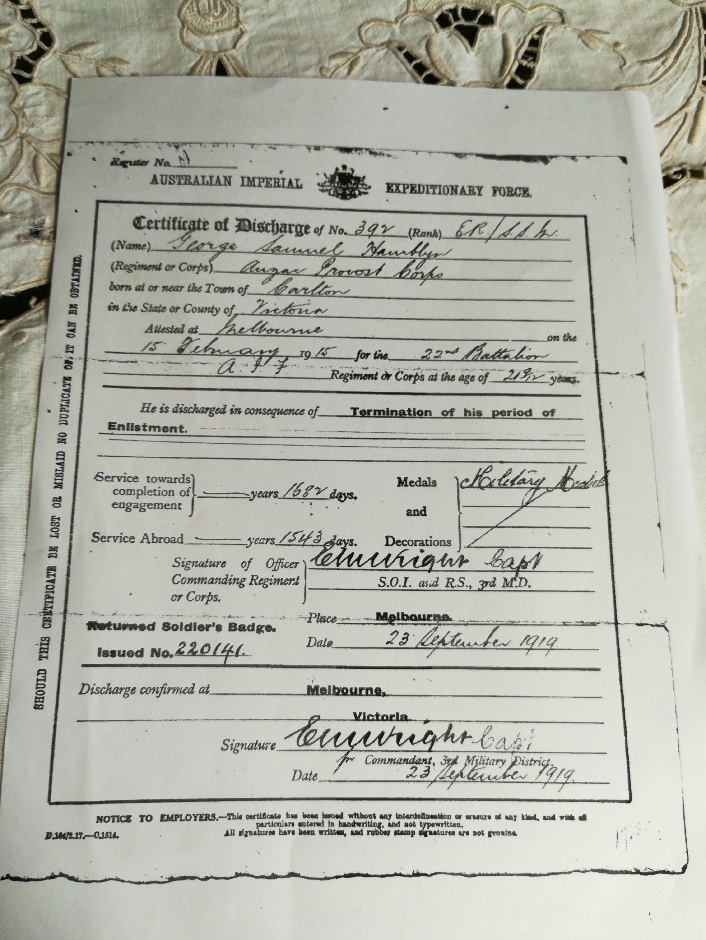 Register No. N
AUSTRALIAN IMPERIAL EXPEDITIONARY FORCE.
Certificate of Discharge of No. 392 (Rank) ER/S.S.M.
(Name) George Samuel Hamblyn
(Regiment or Corps) Anzac Provost Corps
born at or near the Town of Carlton
in the State or County of Victoria
Attested at Melbourne on the
15 February 1915 for the 22nd Battalion
A.I.F Regiment or Corps at the age of years.
He is discharged in consequence of Termination of his period of
Enlistment.
Service towards completion of engagement years 1682 days.
Medals and Decorations Military Medal
Service Abroad years 1543 days.
Signature of Officer Commanding Regiment or Corps. Capt
S.O.I. and R.S., 3rd M.D.
Returned Soldier's Badge.
Issued No. 220141.
Place Melbourne.
Date 23 September 1919
Discharge confirmed at Melbourne,
Victoria.
Signature Capt
for Commandant, 3rd Military District.
Date 23 September 1919.
NOTICE TO EMPLOYERS.—This certificate has been issued without any interdelineation or erasure of any kind, and with all
particulars entered in handwriting, and not typewritten.
All signatures have been written, and rubber stamp signatures are not genuine.
D.184/2.17.—C.1514.
SHOULD THIS CERTIFICATE BE LOST OR MISLAID NO DUPLICATE OF IT CAN BE OBTAINED.